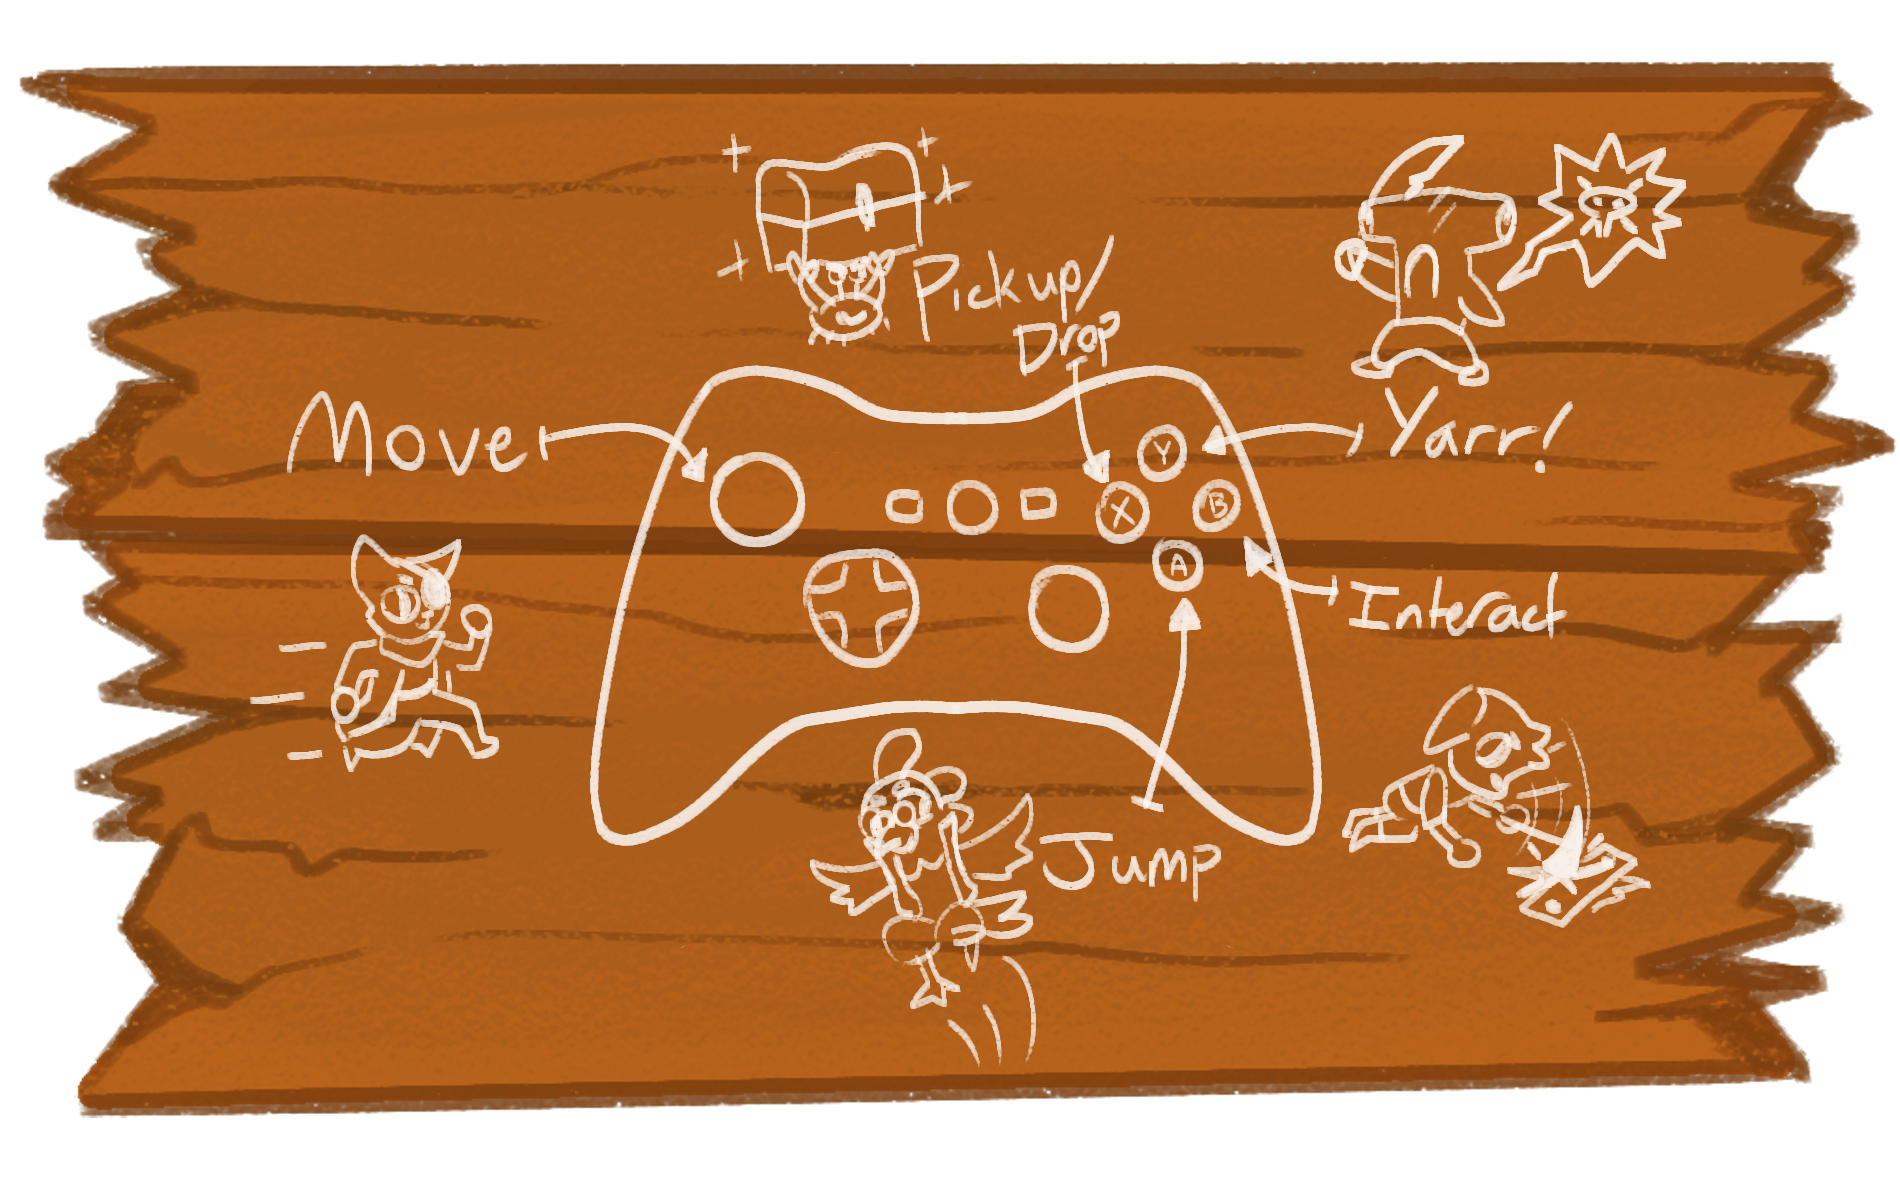 Pickup/
Drop
Move
Yarr!
Y
X
B
A
Interact
Jump